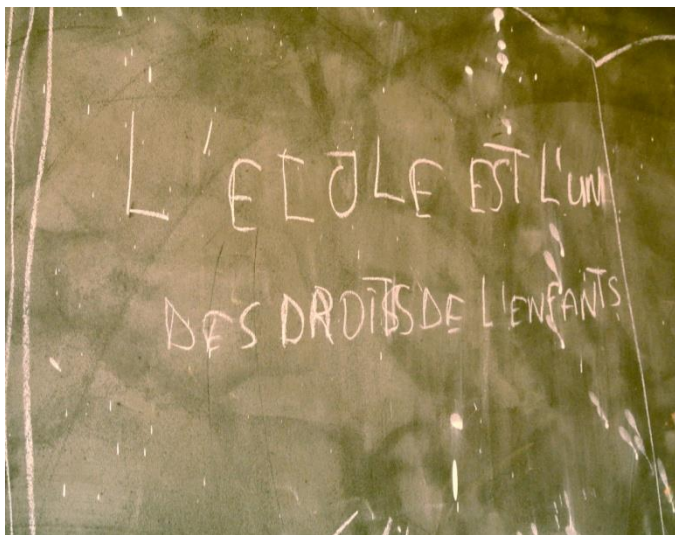 L'ECOLE EST L'UN
DES DROITS DE L'ENFANTS